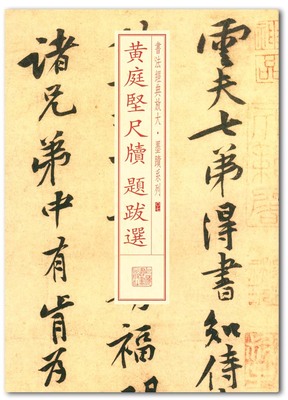 雲夫七弟得書知侍
書法經典放大・墨蹟系列
黃庭堅尺牘 題跋選
福
諸兄弟中有肯為